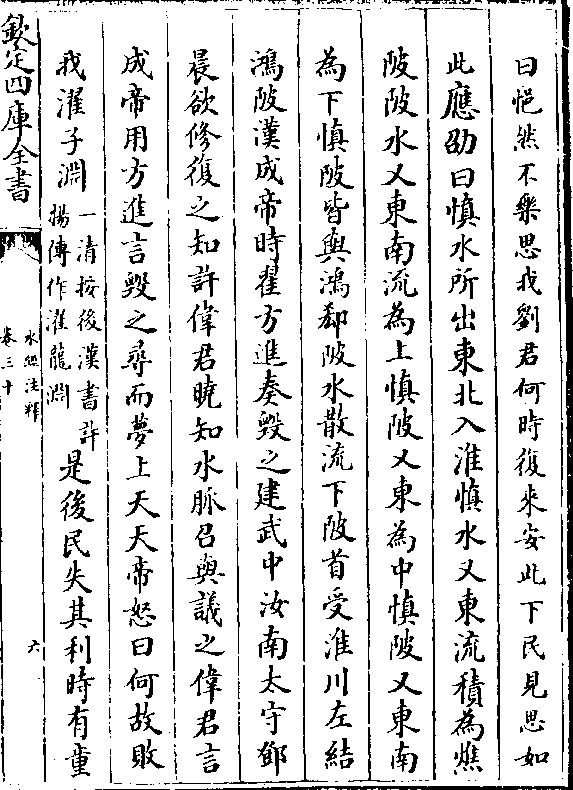 曰悒然不樂思我劉君何時復來安此下民見思如
此應劭曰慎水所出東北入淮慎水又東流積為燋
陂陂水又東南流為上慎陂又東為中慎陂又東南
為下慎陂皆與鴻郄陂水散流下陂首受淮川左結
鴻陂漢成帝時翟方進奏毀之建武中汝南太守鄧
晨欲修復之知許偉君曉知水脈召與議之偉君言
成帝用方進言毀之尋而夢上天天帝怒曰何故敗
我濯子淵一清按後漢書許
揚傳作濯龍淵是後民失其利時有童
欽定四庫全書
水經注釋
卷三十
六